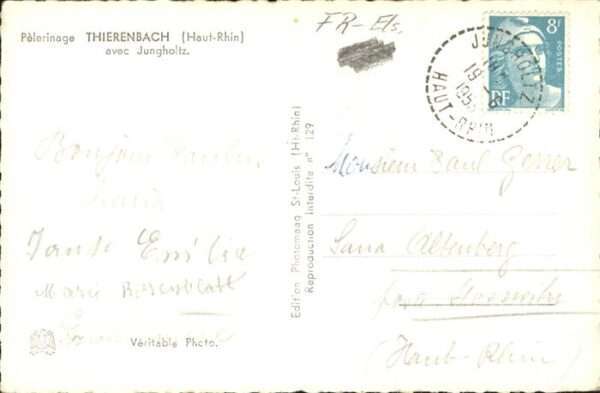 Pèlerinage THIERENBACH (Haut-Rhin)
avec Jungholtz.
FR-Els.
8F
POSTES
RF
JUNGHOLTZ
19
195
HAUT-RHIN
Bonjour
Tante Emilie
Marie Rosenblatt
Véritable Photo.
Edition Photomaag St-Louis (Ht-Rhin)
Reproduction Interdite n° 129
Monsieur Paul
Sana Altenberg
(Haut-Rhin)